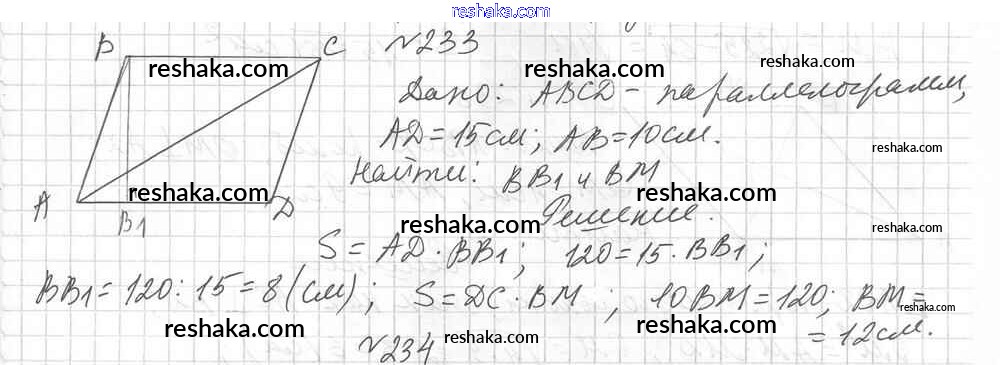 reshaka.com
B C №233
reshaka.com reshaka.com
Дано: ABCD - параллелограмм,
AD = 15 см; AB = 10 см.
reshaka.com
Найти: BB1 и BM
A reshaka.com D reshaka.com
B1 Решение.
reshaka.com reshaka.com reshaka.com
S = AD · BB1; 120 = 15 · BB1;
BB1 = 120 : 15 = 8 (см); S = DC · BM; 10BM = 120; BM =
reshaka.com
= 12 см.
reshaka.com reshaka.com reshaka.com
№234
reshaka.com